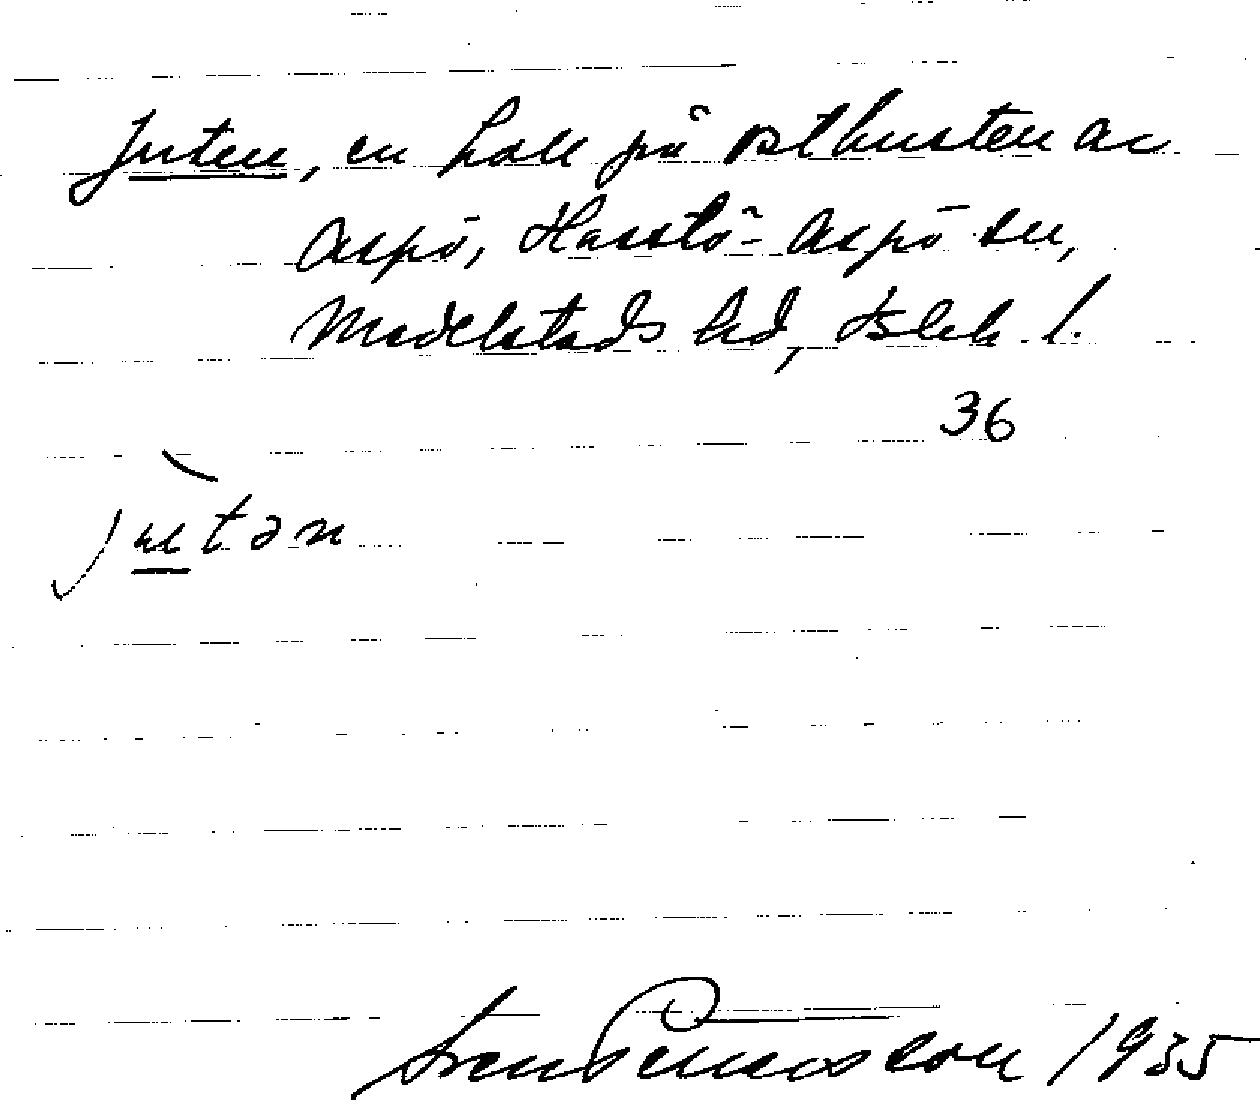 Juten, en hall på östkusten av
Aspö, Hasslö-Aspö sn,
Medelstads hd, Blek. l.
36
jutən
Sven Benson 1935